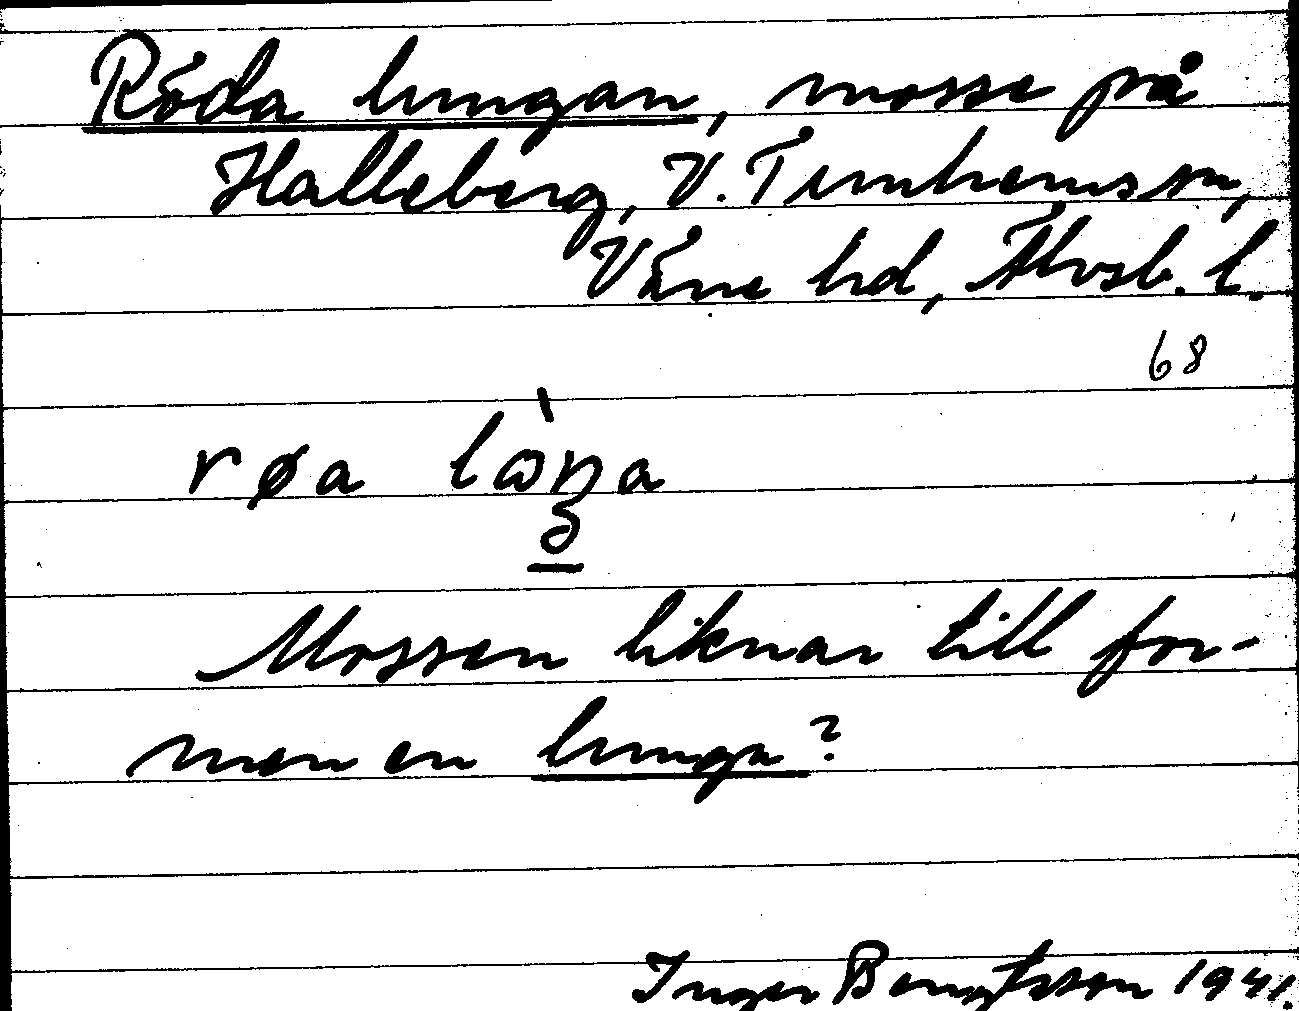 Röda lungan, mosse på
Halleberg, V. Tunhems sn,
Väne hd, Älvsb. l.
68
røa lòŋa
Mossen liknar till for-
men en lunga?
Inger Bengtsson 1941.